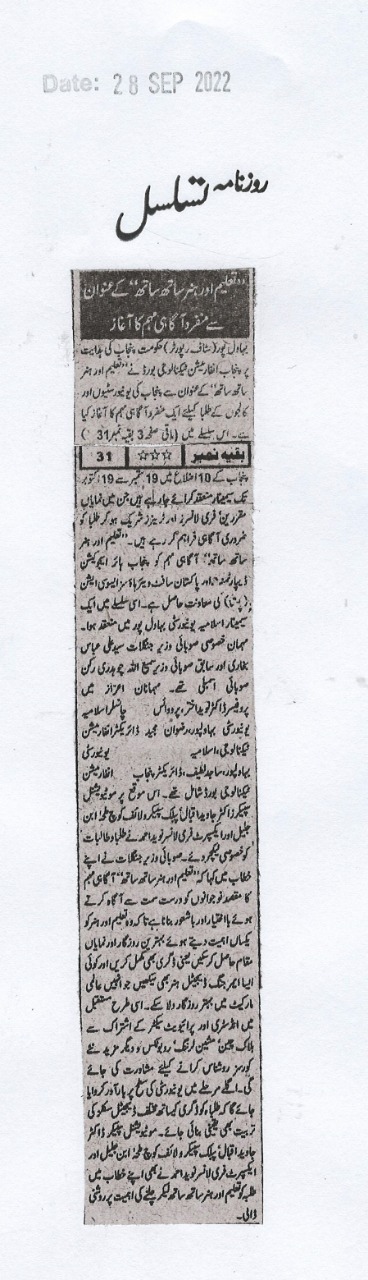 Date: 28 SEP 2022
روزنامہ تسلسل
”تعلیم اور ہنر ساتھ ساتھ“ کے عنوان
سے منفرد آگاہی مہم کا آغاز
بہاول پور (سٹاف رپورٹر) حکومت پنجاب کی ہدایت
پر پنجاب انفارمیشن ٹیکنالوجی بورڈ نے ”تعلیم اور ہنر
ساتھ ساتھ“ کے عنوان سے پنجاب کی یونیورسٹیوں اور
کالجوں کے طلبا کیلئے ایک منفرد آگاہی مہم کا آغاز کیا
ہے۔ اس سلسلے میں (باقی صفحہ 3 بقیہ نمبر 31)
بقیہ نمبر ☆☆☆ 31
پنجاب کے 10 اضلاع میں 19 ستمبر سے 19 اکتوبر
تک سیمینار منعقد کرائے جا رہے ہیں جن میں نمایاں
مقررین، فری لانسرز اور ٹرینرز شریک ہو کر طلبا کو
ضروری آگاہی فراہم کر رہے ہیں۔ ”تعلیم اور ہنر
ساتھ ساتھ“ آگاہی مہم کو پنجاب ہائر ایجوکیشن
ڈیپارٹمنٹ اور پاکستان سافٹ ویئر ہاؤسز ایسوسی ایشن
(پاشا) کی معاونت حاصل ہے۔ اسی سلسلے میں ایک
سیمینار اسلامیہ یونیورسٹی بہاول پور میں منعقد ہوا۔
مہمان خصوصی صوبائی وزیر جنگلات سید علی عباس
بخاری اور سابق صوبائی وزیر سمیع اللہ چوہدری رکن
صوبائی اسمبلی تھے۔ مہمانان اعزاز میں
پروفیسر ڈاکٹر نوید اختر، پرو وائس چانسلر اسلامیہ
یونیورسٹی بہاولپور، رضوان مجید ڈائریکٹر انفارمیشن
ٹیکنالوجی، اسلامیہ یونیورسٹی
بہاولپور، ساجد لطیف، ڈائریکٹر پنجاب انفارمیشن
ٹیکنالوجی بورڈ شامل تھے۔ اس موقع پر موٹیویشنل
سپیکر ڈاکٹر جاوید اقبال، پبلک سپیکر و لائف کوچ طحہٰ ابن
جلیل اور ایکسپرٹ فری لانسر نوید احمد نے طلباء و طالبات
کو خصوصی لیکچر دئے۔ صوبائی وزیر جنگلات نے اپنے
خطاب میں کہا کہ ”تعلیم اور ہنر ساتھ ساتھ“ آگاہی مہم
کا مقصد نوجوانوں کو درست سمت سے آگاہ کرتے
ہوئے با اختیار اور باشعور بنانا ہے تاکہ وہ تعلیم اور ہنر کو
یکساں اہمیت دیتے ہوئے بہترین روزگار اور نمایاں
مقام حاصل کر سکیں یعنی ڈگری بھی مکمل کریں اور کوئی
ایسا ایمرجنگ ڈیجیٹل ہنر بھی سیکھیں جو انہیں عالمی
مارکیٹ میں بہتر روزگار دلا سکے۔ اسی طرح مستقبل
میں انڈسٹری اور پرائیویٹ سیکٹر کے اشتراک سے
بلاک چین، مشین لرننگ، روبوٹکس و دیگر مزید نئے
کورسز روشناس کرانے کیلئے مشاورت کی جائے
گی۔ اگلے مرحلے میں یونیورسٹی کی سطح پر باور کروایا
جائے گا کہ طلباء کو ڈگری کیساتھ مختلف ڈیجیٹل سکلز کی
تربیت بھی یقینی بنائی جائے۔ موٹیویشنل سپیکر ڈاکٹر
جاوید اقبال، پبلک سپیکر و لائف کوچ طحہٰ ابن جلیل اور
ایکسپرٹ فری لانسر نوید احمد نے بھی اپنے خطاب میں
طلبہ کو تعلیم اور ہنر ساتھ ساتھ لیکر چلنے کی اہمیت پر روشنی
ڈالی۔